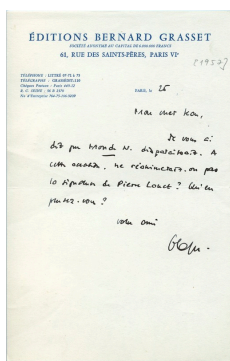 ÉDITIONS BERNARD GRASSET
SOCIÉTÉ ANONYME AU CAPITAL DE
61, RUE DES SAINTS-PÈRES, PARIS VIᵉ
[1957]
TÉLÉPHONE : LITTRÉ
TÉLÉGRAPHE : GRASSEDIT-110
Chèques Postaux : Paris
R. C. SEINE
PARIS, le 25
Mon cher
Je vous ai
dit que Monde N. disparaissait. A
cette occasion, ne réanimerait-on pas
la signature de Pierre Lanct ? Qu'en
pensez-vous ?
votre ami